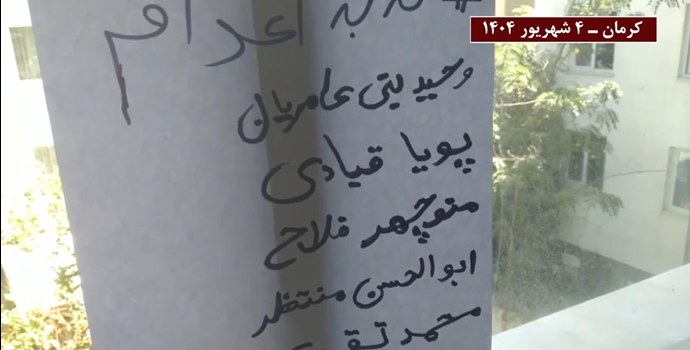 کرمان – ۴ شهریور ۱۴۰۴
# نه به اعدام
وحید بنی عامریان
پویا قبادی
منوچهر فلاح
ابوالحسن منتظر
محمد تقوی